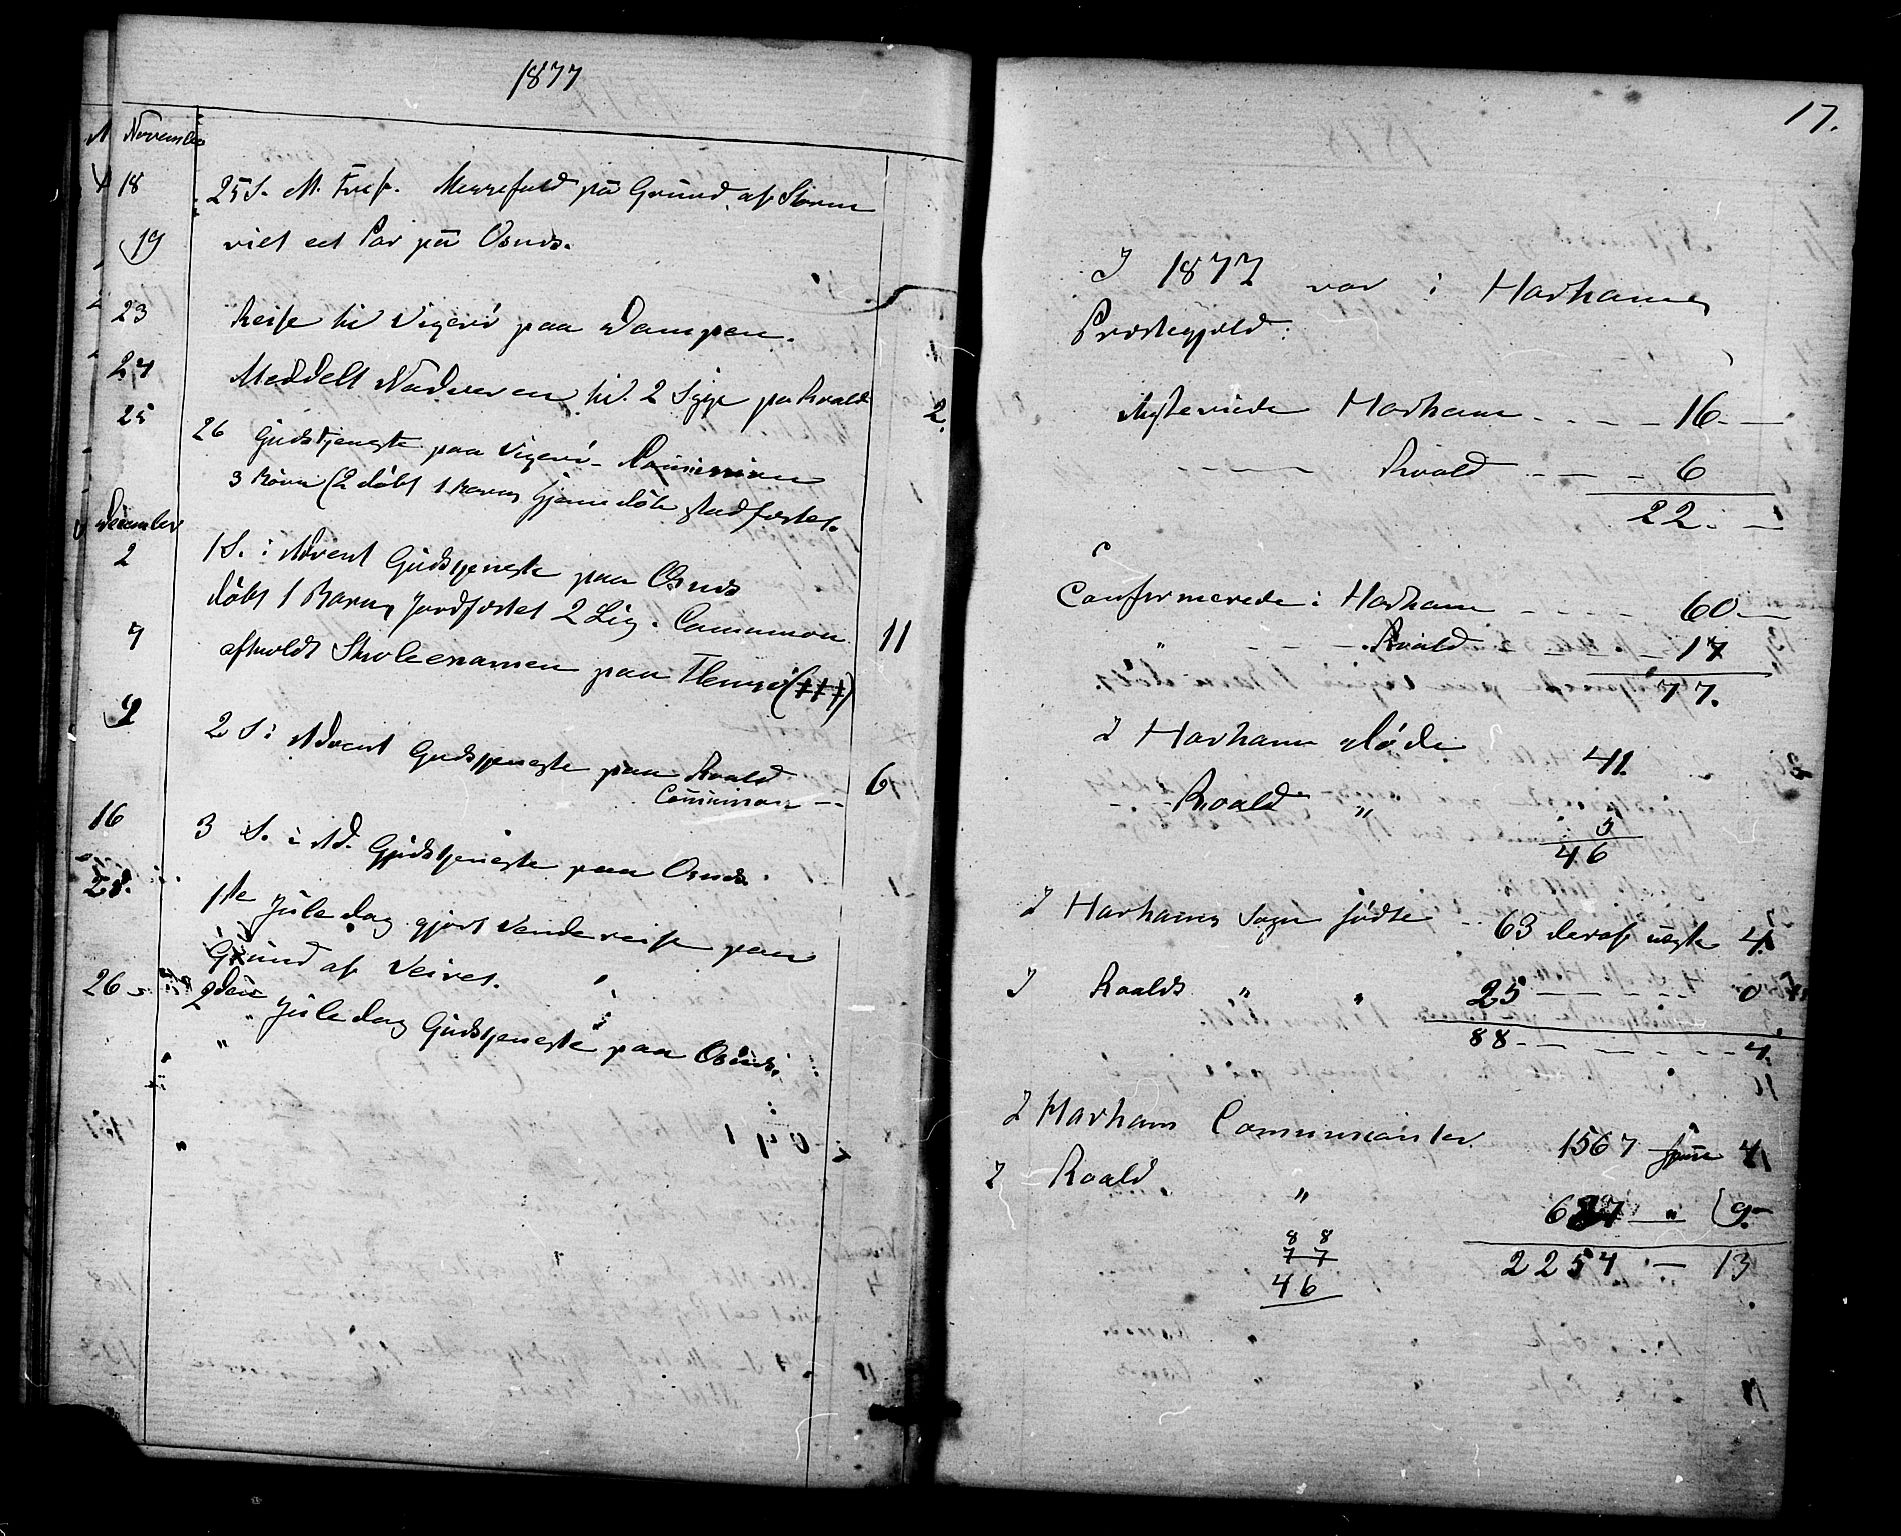 1877
November
18 25 S. M. Tref. Messefald på Grund af Storm
19 viet eet Par på Osnes.
23 Reise til Vigerö paa Dampen.
24 Meddelt Nadveren til 2 Syge på Roald 2.
25 26 Gudstjeneste paa Vigerö - Communion
3 Börn (2 döbt 1 Barns Hjemmedöb stadfæstet.
December
2 1 S. i Advent Gudstjeneste paa Osnes
döbt 1 Barn, Jordfæstet 2 Lig. Communion 11
7 afholdt Skoleexamen paa Flemsö (+++)
9 2 S. i Advent Gudstjeneste paa Roald
Communion -- 6
16 3 S. i Ad. Gudstjeneste paa Osnes.
25. 1ste Juledag gjort Vendereise paa
Grund af Veiret.
26 2den Juledag Gudstjeneste paa Osnes.
17.
I 1877 var i Harhams
Præstegjeld:
Ægteviede Harham - - - - 16 -
- - - Roald - - - 6
22. -
Confirmerede i Harham - - - - 60 -
" - - - Roald - - - - 17
77.
I Harham döde 41.
- - Roald " 5
46
I Harhams Sogn födte - 63 deraf uægte 4.
I Roalds " " 25 - - - - 0
88 - - - - - 4.
I Harham Communicanter 1567 4
I - Roald " 687 - " 9
2254 - 13
88
77
46